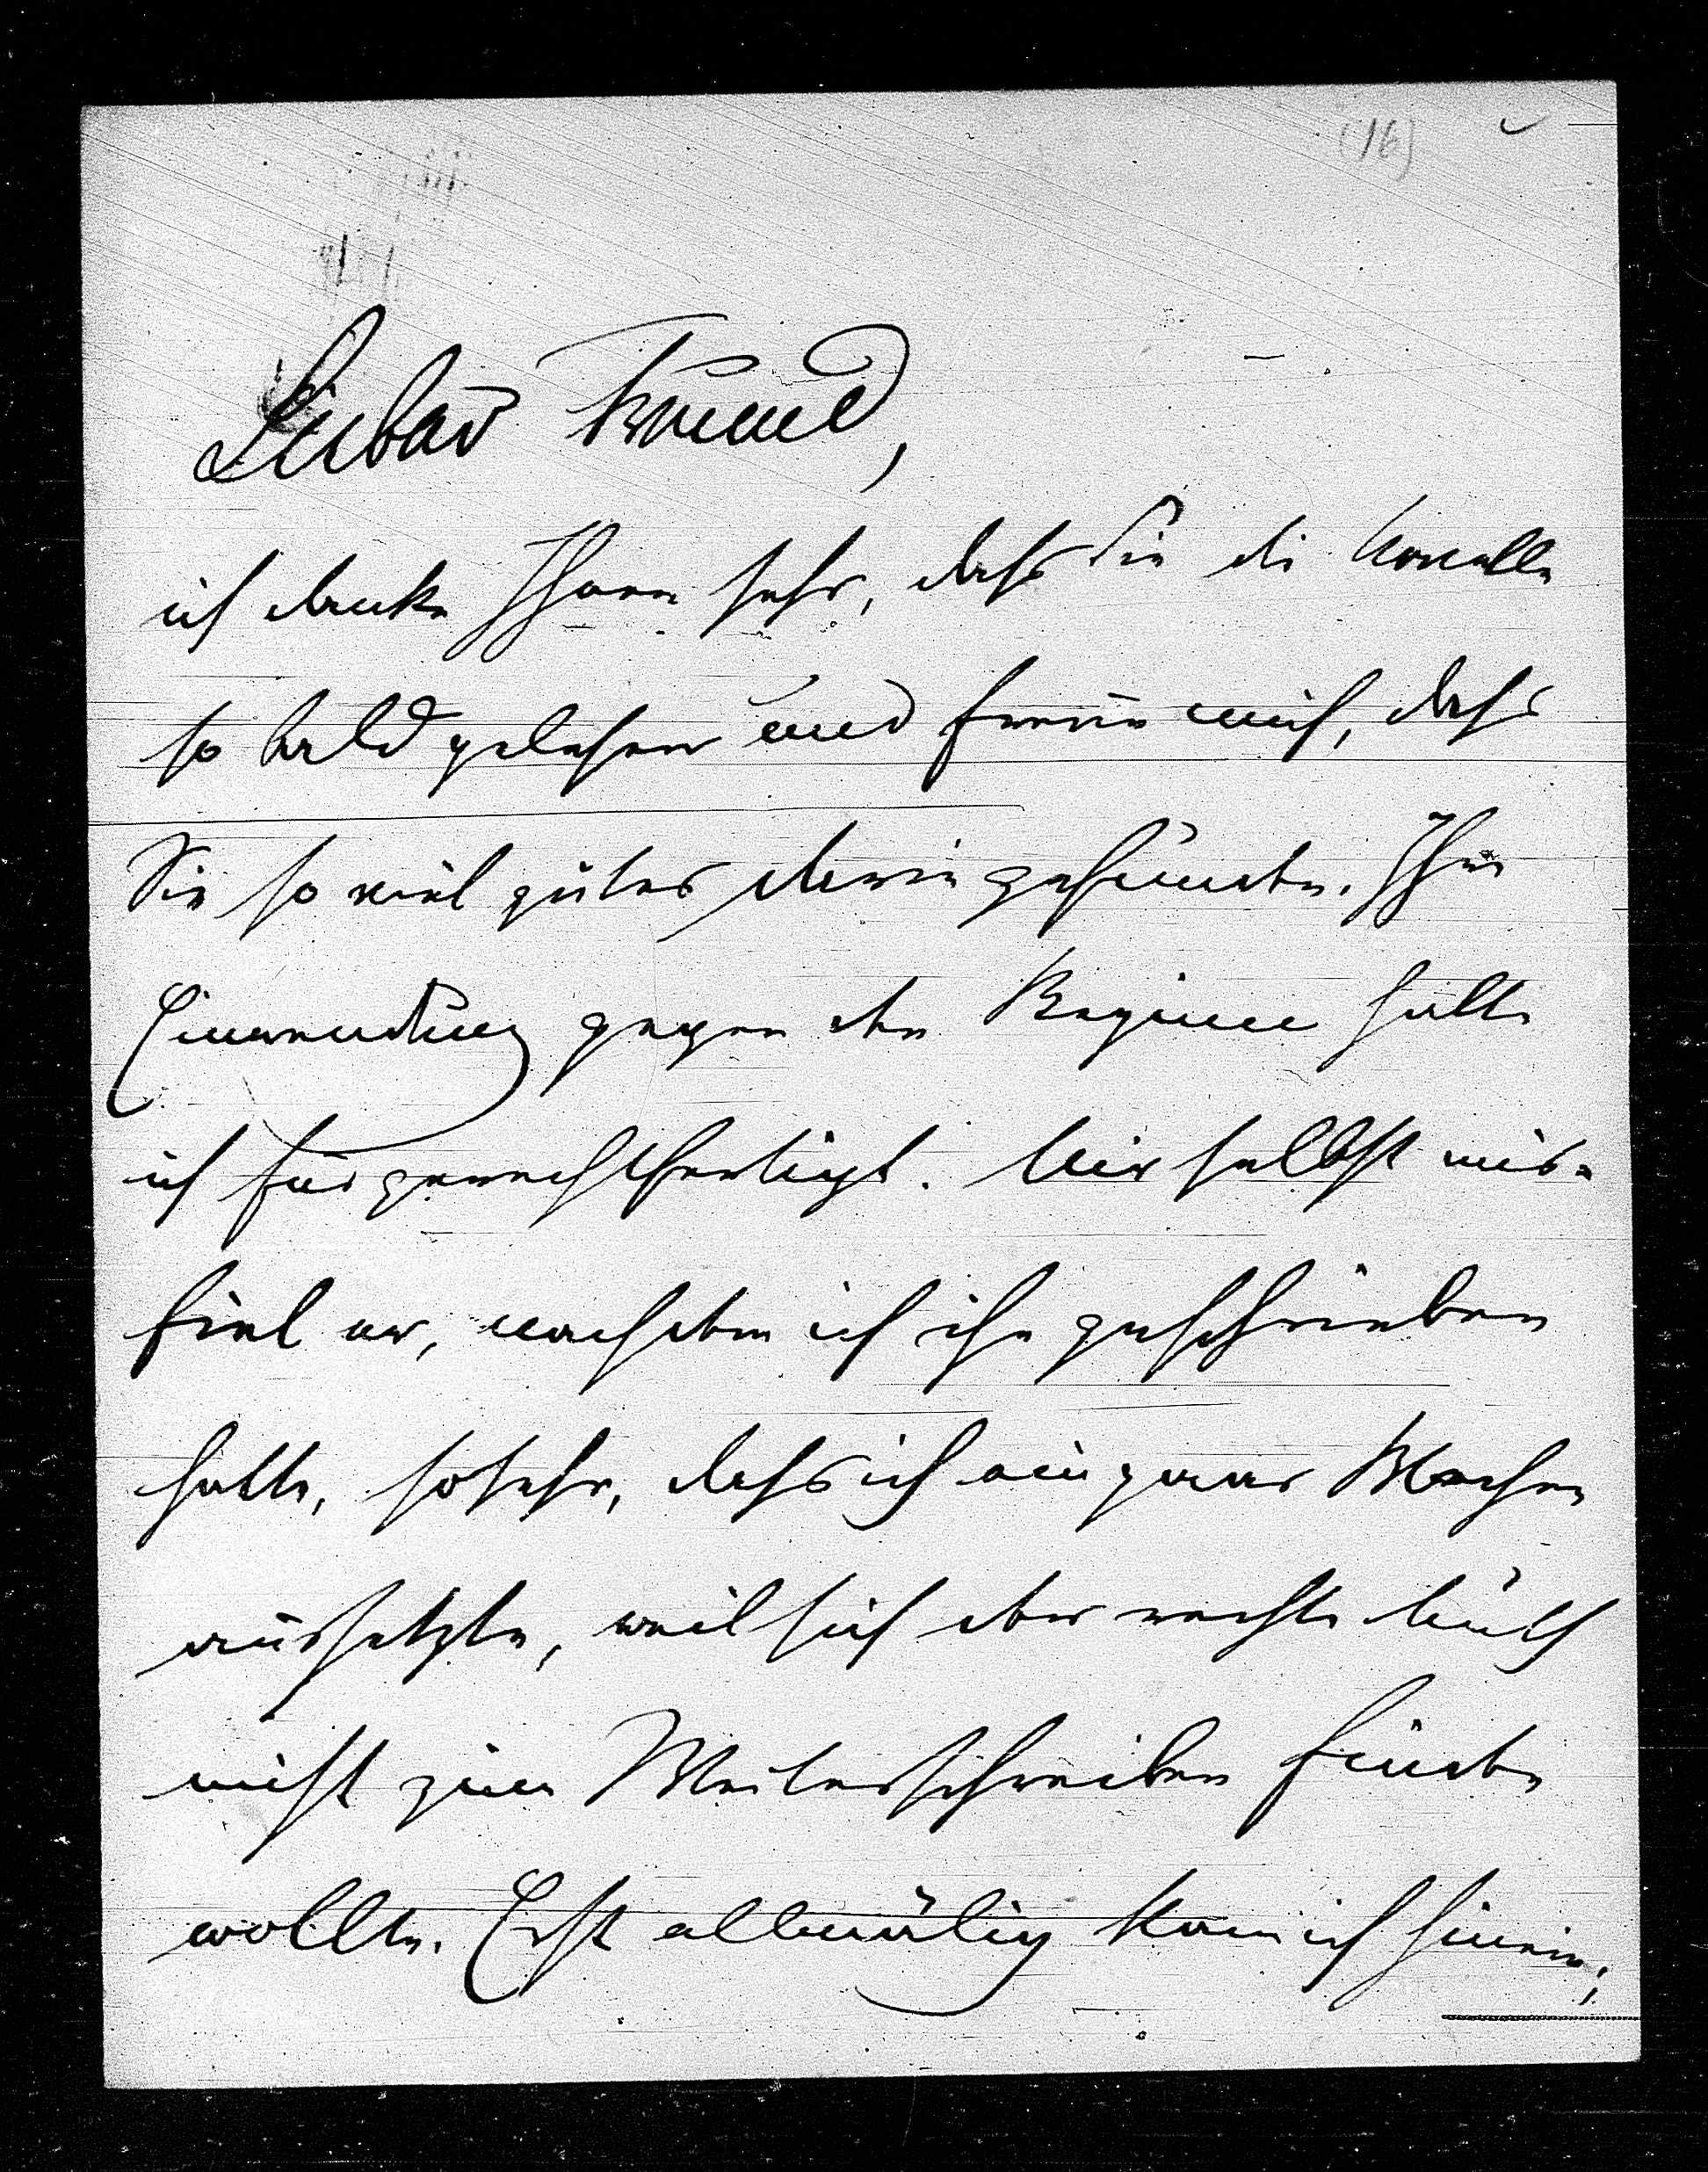 (16)
Lieber Freund,
ich danke Ihnen sehr, dass Sie die Novelle
so bald gelesen und freue mich, dass
Sie so viel gutes darin gefunden. Ihre
Einwendung gegen den Beginn halte
ich für gerechtfertigt. Mir selbst mis-
fiel er, nachdem ich ihn geschrieben
hatte, so sehr, dass ich ein paar Wochen
aussetzte, weil sich der rechte Muth
nicht zum Weiterschreiben finden
wollte. Erst allmälig kam ich hinein;